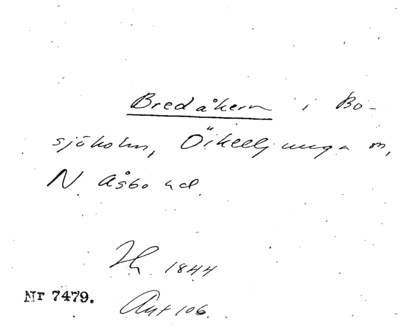 Bredåkern i Bo-
sjöholm, Örkelljunga sn,
N Åsbo hd.
Hy. 1844
Nr 7479.
Ant 106.